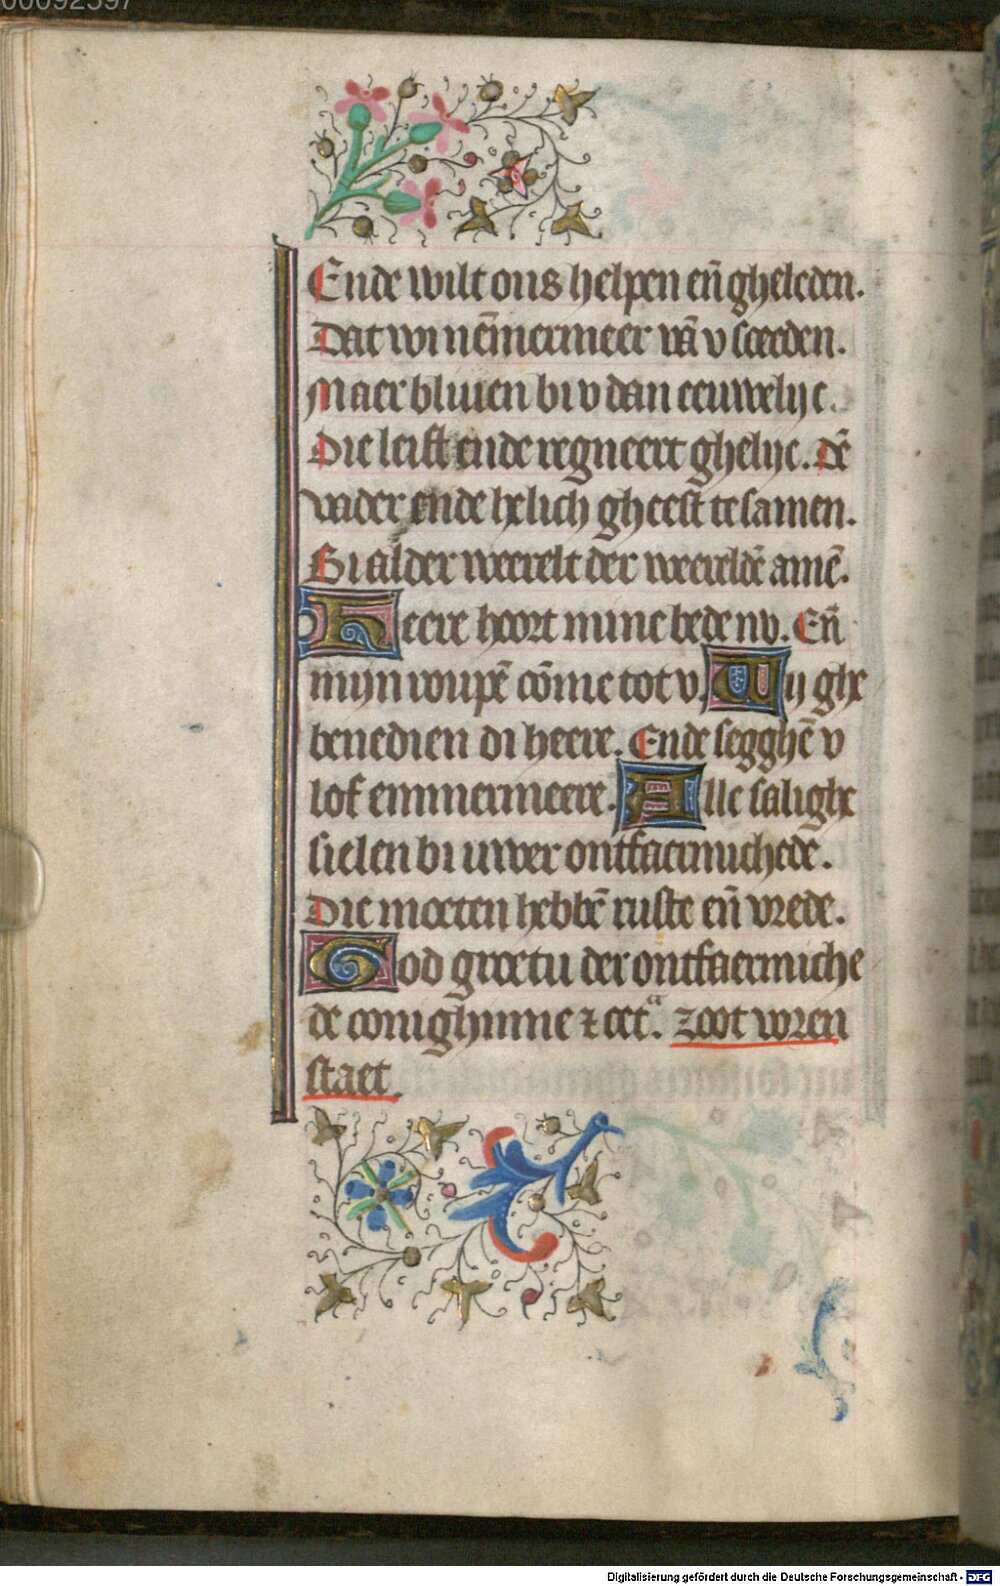 00092597
Ende wilt ons helpen en̄ gheleden.
Dat wi nēmermeer vā v sceeden.
Maer bliuen bi v dan eeuwelijc.
Die leift ende regneert ghelijc. Dē
vader ende helich gheest te samen.
Bi alder weerelt der weereldē amē.
Heere hoort mine bede nv. En̄
mijn roupē cōme tot v. Wij ghe
benedien di heere. Ende segghē v
lof emmermeere. Alle salighe
sielen bi uwer ontfaermichede.
Die moeten hebbē ruste en̄ vrede.
God groetu der ontfaermiche
de conighinne ⁊ cetᵃ. zoot voren
staet.
Digitalisierung gefördert durch die Deutsche Forschungsgemeinschaft - DFG